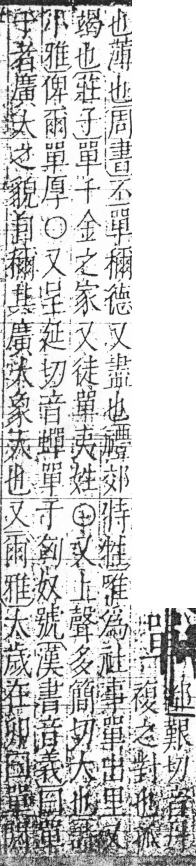 單
艱切音丹
複之對也孤
也薄也周書丕單稱德又盡也禮郊特牲唯為社事單出里又
竭也莊子單千金之家又徒單夷姓○又上聲多簡切大也詩
小雅俾爾單厚○又呈延切音蟬單于匈奴號漢書音義曰單
于者廣大之貌言稱其廣大象天也又爾雅太歲在卯曰單閼